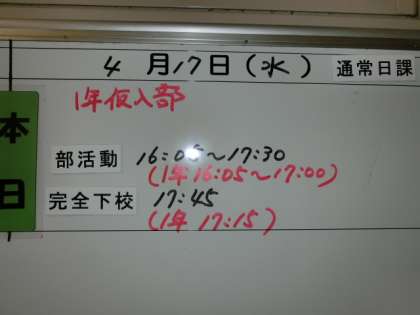 4月17日(水) 通常日課
1年仮入部
本日
部活動 16:05~17:30
(1年 16:05~17:00)
完全下校 17:45
(1年 17:15)